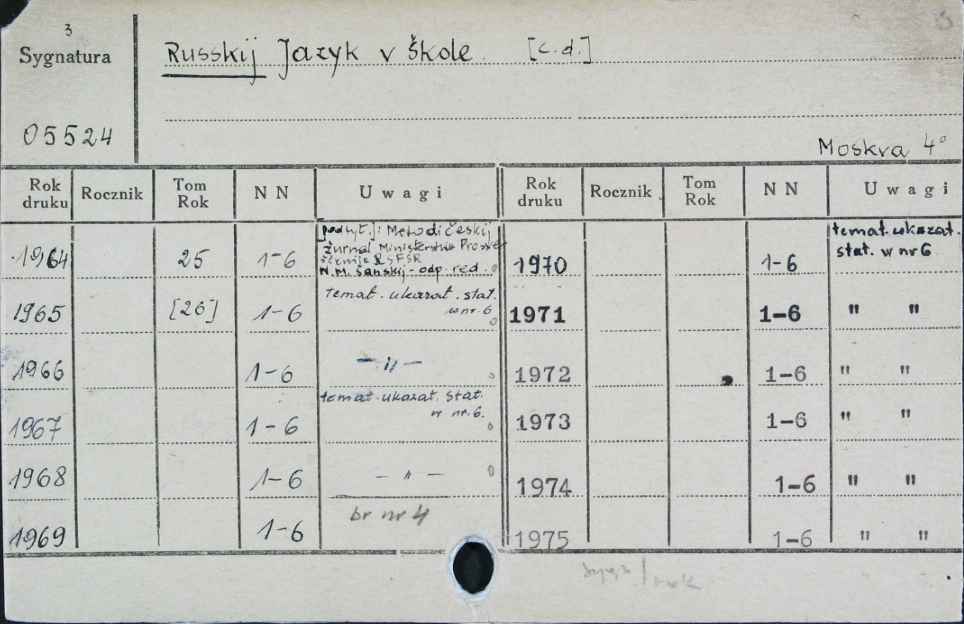 3
Sygnatura
05524
3
Russkij Jazyk v škole. [c.d.]
Moskva 4°
Rok druku Rocznik Tom Rok NN Uwagi Rok druku Rocznik Tom Rok NN Uwagi
1964 25 1-6 [podtyt.]: Metodičeskij
žurnal Ministerstva
RSFSR
N.M. Šanskij - odp. red. 0
1970 1-6 temat. ukazat.
stat. w nr 6
1965 [26] 1-6 temat. ukazat. stat.
w nr. 6
0
1971 1-6 " "
1966 1-6 — " — 0
1972 1-6 " "
1967 1-6 temat. ukazat. stat.
w nr. 6.
0
1973 1-6 " "
1968 1-6 — " — 0
1974 1-6 " "
1969 1-6 br nr 4
1975 1-6 " "